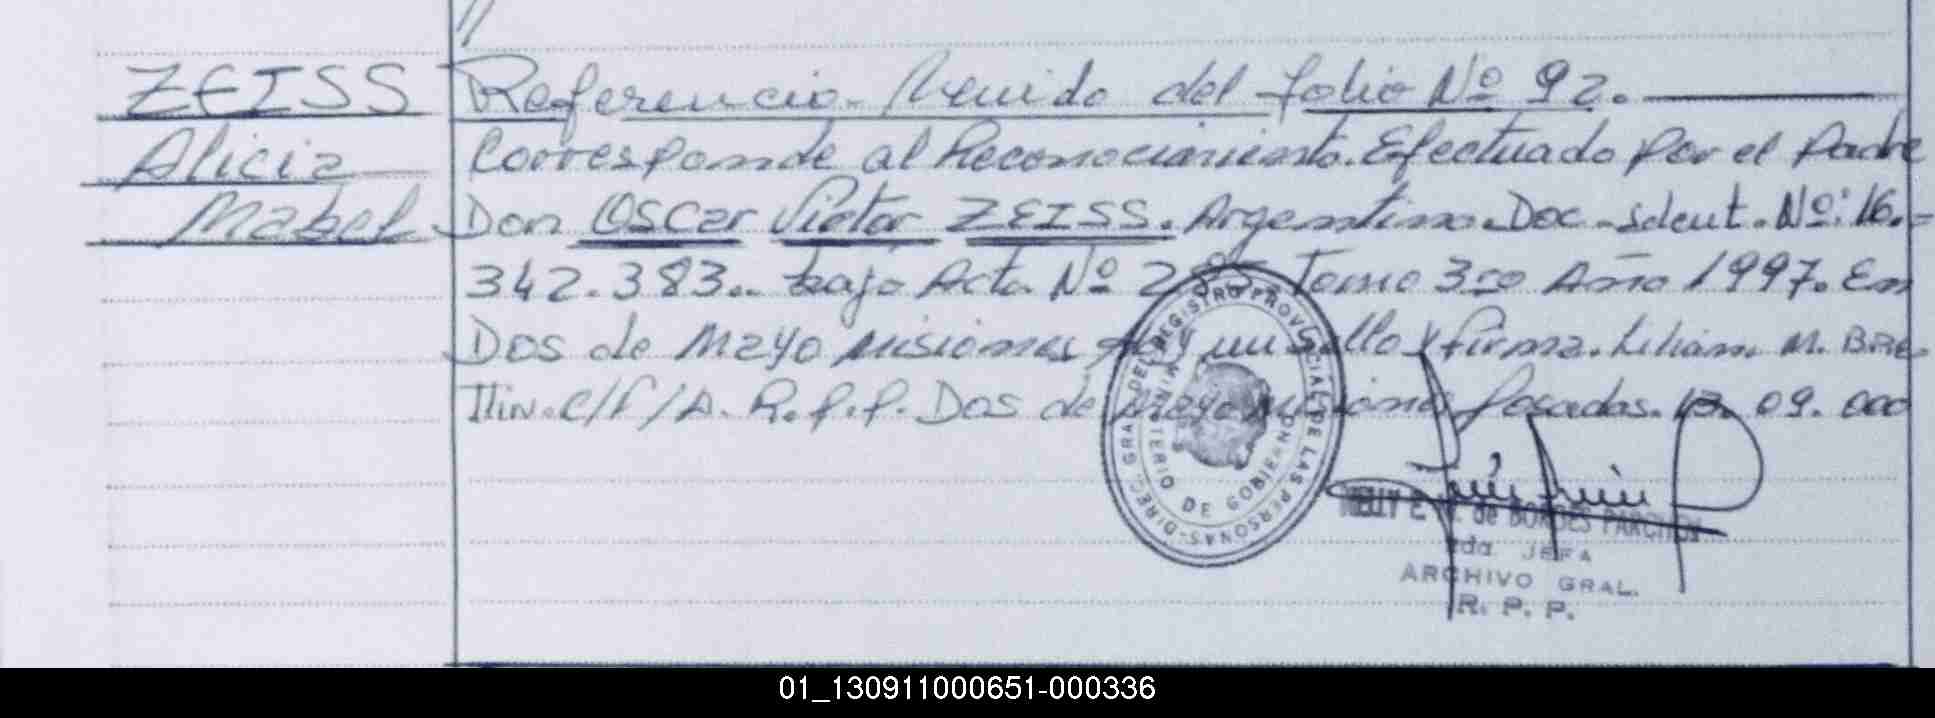 ZEISS
Alicia
Mabel
Referencia. Venido del folio Nº 92.
Corresponde al Reconocimiento. Efectuado por el Padre
Don Oscar Victor ZEISS. Argentino. Doc. Ident. Nº: 16.-
342.383.. bajo Acta Nº Tomo 3ro Año 1997. En
Dos de Mayo Misiones Hay un sello y firma. Lilian. M. BRE-
TTIN. C/f/A. R.P.P. Dos de Mayo Misiones Posadas. 13. 09. 000
DIREC. GRAL. DEL REGISTRO PROVINCIAL DE LAS PERSONAS-
MINISTERIO DE GOBIERNO
NELLY E. de BORDES
2da. JEFA
ARCHIVO GRAL.
R. P. P.
01_130911000651-000336